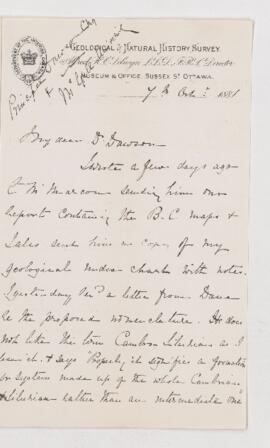 GEOLOGICAL & NATURAL HISTORY SURVEY.
Alfred R. C. Selwyn, LL.D., F.R.S., Director
MUSEUM & OFFICE, SUSSEX ST OTTAWA.
Principal
McGill
7th Oct 1881
My dear Dr Dawson
I wrote a few days ago
to Mr Marcou sending him our
Reports containing the B.C. maps &
I also sent him a copy of my
geological index chart with notes.
Yesterday recd a letter from Dana
re the proposed nomenclature. He does
not like the term Cambro Silurian as I
use it & says "Properly it signifies a formation
or system made up of the whole Cambrian
& Silurian rather than an intermediate one